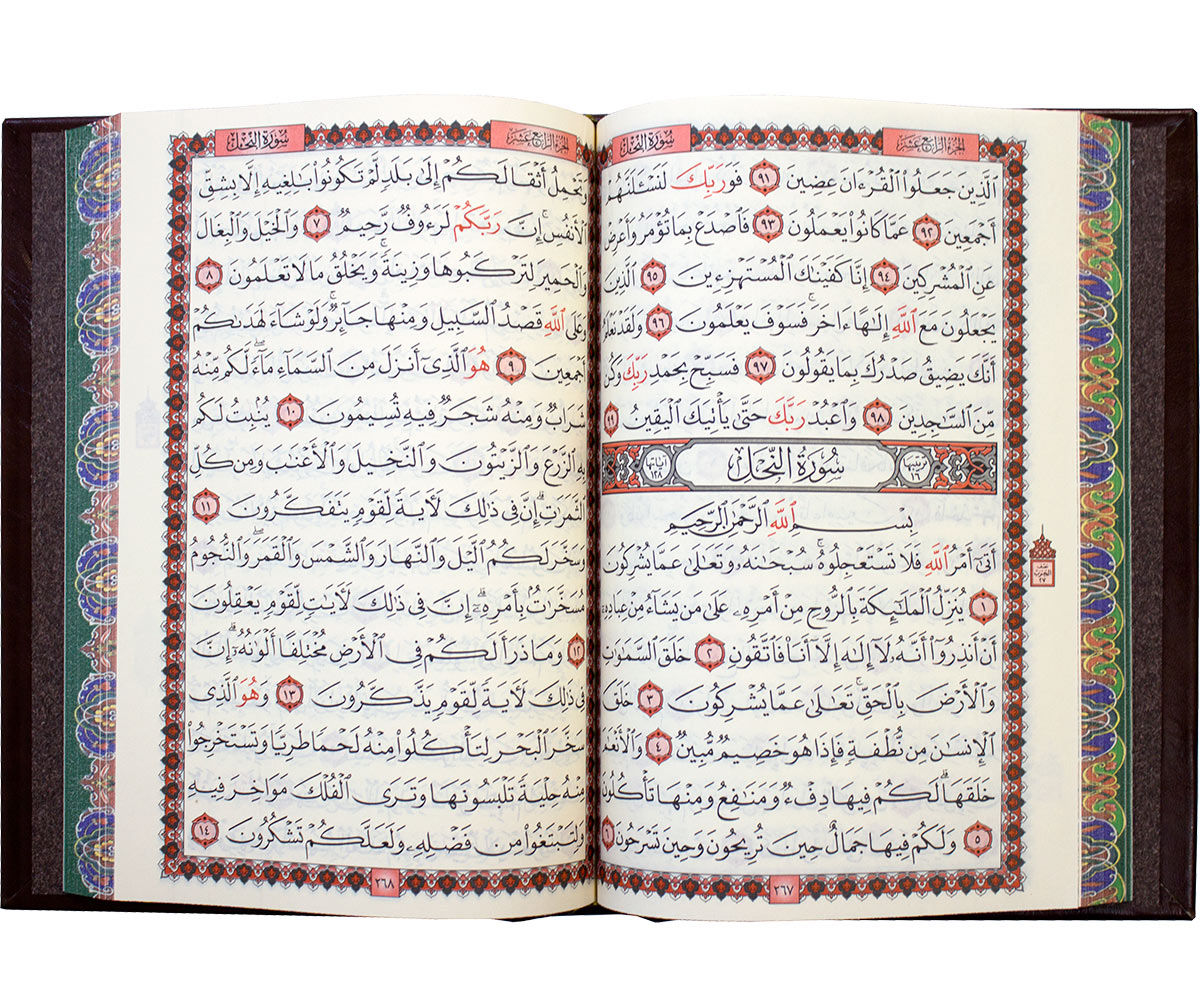 الجزء الرابع عشر
سورة النحل
ٱلَّذِينَ جَعَلُوا۟ ٱلْقُرْءَانَ عِضِينَ ٩١ فَوَرَبِّكَ لَنَسْـَٔلَنَّهُمْ
أَجْمَعِينَ ٩٢ عَمَّا كَانُوا۟ يَعْمَلُونَ ٩٣ فَٱصْدَعْ بِمَا تُؤْمَرُ وَأَعْرِضْ
عَنِ ٱلْمُشْرِكِينَ ٩٤ إِنَّا كَفَيْنَٰكَ ٱلْمُسْتَهْزِءِينَ ٩٥ ٱلَّذِينَ
يَجْعَلُونَ مَعَ ٱللَّهِ إِلَٰهًا ءَاخَرَ ۚ فَسَوْفَ يَعْلَمُونَ ٩٦ وَلَقَدْ نَعْلَمُ
أَنَّكَ يَضِيقُ صَدْرُكَ بِمَا يَقُولُونَ ٩٧ فَسَبِّحْ بِحَمْدِ رَبِّكَ وَكُن
مِّنَ ٱلسَّٰجِدِينَ ٩٨ وَٱعْبُدْ رَبَّكَ حَتَّىٰ يَأْتِيَكَ ٱلْيَقِينُ ٩٩
ترتيبها ١٦
سُورَةُ النَّحْلِ
آياتها ١٢٨
بِسْمِ ٱللَّهِ ٱلرَّحْمَٰنِ ٱلرَّحِيمِ
أَتَىٰٓ أَمْرُ ٱللَّهِ فَلَا تَسْتَعْجِلُوهُ ۚ سُبْحَٰنَهُۥ وَتَعَٰلَىٰ عَمَّا يُشْرِكُونَ
١ يُنَزِّلُ ٱلْمَلَٰٓئِكَةَ بِٱلرُّوحِ مِنْ أَمْرِهِۦ عَلَىٰ مَن يَشَآءُ مِنْ عِبَادِهِۦٓ
أَنْ أَنذِرُوٓا۟ أَنَّهُۥ لَآ إِلَٰهَ إِلَّآ أَنَا۠ فَٱتَّقُونِ ٢ خَلَقَ ٱلسَّمَٰوَٰتِ
وَٱلْأَرْضَ بِٱلْحَقِّ ۚ تَعَٰلَىٰ عَمَّا يُشْرِكُونَ ٣ خَلَقَ
ٱلْإِنسَٰنَ مِن نُّطْفَةٍ فَإِذَا هُوَ خَصِيمٌ مُّبِينٌ ٤ وَٱلْأَنْعَٰمَ
خَلَقَهَا ۗ لَكُمْ فِيهَا دِفْءٌ وَمَنَٰفِعُ وَمِنْهَا تَأْكُلُونَ
٥ وَلَكُمْ فِيهَا جَمَالٌ حِينَ تُرِيحُونَ وَحِينَ تَسْرَحُونَ ٦
٢٦٧
الجزء الرابع عشر
سورة النحل
وَتَحْمِلُ أَثْقَالَكُمْ إِلَىٰ بَلَدٍ لَّمْ تَكُونُوا۟ بَٰلِغِيهِ إِلَّا بِشِقِّ
ٱلْأَنفُسِ ۚ إِنَّ رَبَّكُمْ لَرَءُوفٌ رَّحِيمٌ ٧ وَٱلْخَيْلَ وَٱلْبِغَالَ
وَٱلْحَمِيرَ لِتَرْكَبُوهَا وَزِينَةً ۚ وَيَخْلُقُ مَا لَا تَعْلَمُونَ ٨
وَعَلَى ٱللَّهِ قَصْدُ ٱلسَّبِيلِ وَمِنْهَا جَآئِرٌ ۚ وَلَوْ شَآءَ لَهَدَىٰكُمْ
أَجْمَعِينَ ٩ هُوَ ٱلَّذِىٓ أَنزَلَ مِنَ ٱلسَّمَآءِ مَآءً ۖ لَّكُم مِّنْهُ
شَرَابٌ وَمِنْهُ شَجَرٌ فِيهِ تُسِيمُونَ ١٠ يُنۢبِتُ لَكُم
بِهِ ٱلزَّرْعَ وَٱلزَّيْتُونَ وَٱلنَّخِيلَ وَٱلْأَعْنَٰبَ وَمِن كُلِّ
ٱلثَّمَرَٰتِ ۗ إِنَّ فِى ذَٰلِكَ لَءَايَةً لِّقَوْمٍ يَتَفَكَّرُونَ ١١
وَسَخَّرَ لَكُمُ ٱلَّيْلَ وَٱلنَّهَارَ وَٱلشَّمْسَ وَٱلْقَمَرَ ۖ وَٱلنُّجُومُ
مُسَخَّرَٰتٌۢ بِأَمْرِهِۦٓ ۗ إِنَّ فِى ذَٰلِكَ لَءَايَٰتٍ لِّقَوْمٍ يَعْقِلُونَ
١٢ وَمَا ذَرَأَ لَكُمْ فِى ٱلْأَرْضِ مُخْتَلِفًا أَلْوَٰنُهُۥٓ ۗ إِنَّ
فِى ذَٰلِكَ لَءَايَةً لِّقَوْمٍ يَذَّكَّرُونَ ١٣ وَهُوَ ٱلَّذِى
سَخَّرَ ٱلْبَحْرَ لِتَأْكُلُوا۟ مِنْهُ لَحْمًا طَرِيًّا وَتَسْتَخْرِجُوا۟
مِنْهُ حِلْيَةً تَلْبَسُونَهَا وَتَرَى ٱلْفُلْكَ مَوَاخِرَ فِيهِ
وَلِتَبْتَغُوا۟ مِن فَضْلِهِۦ وَلَعَلَّكُمْ تَشْكُرُونَ ١٤
٢٦٨